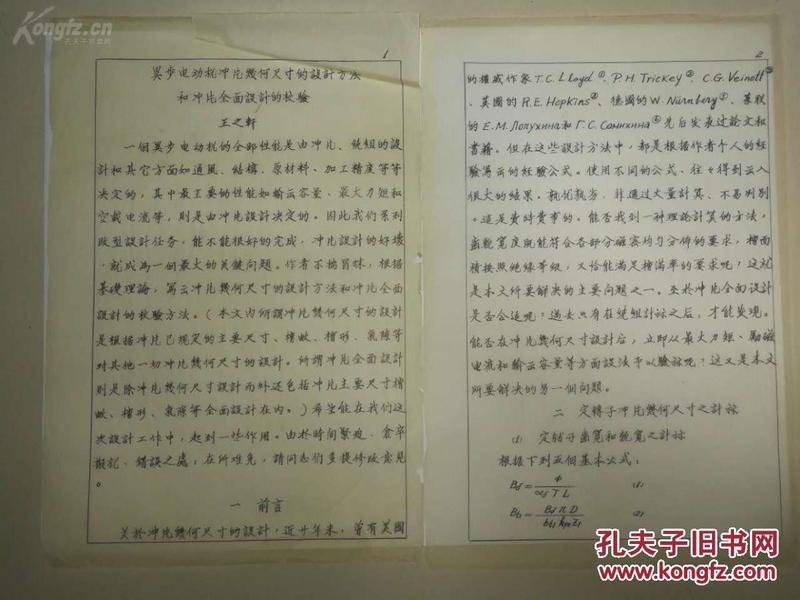 Kongfz.cn
孔夫子旧书网
1
異步电动机冲片幾何尺寸的設計方法
和冲片全面設計的校驗
王之軒
一個異步电动机的全部性能是由冲片、繞組的設
計和其它方面如通風、結構、原材料、加工精度等等
决定的，其中最主要的性能如輸云容量、最大力矩和
空載电流等，則是由冲片設計决定的。因此我們系列
改型設計任务，能不能很好的完成，冲片設計的好壞
，就成為一個最大的关鍵問題。作者不揣冒昧，根据
基礎理論，写云冲片幾何尺寸的設計方法和冲片全面
設計的校驗方法。（本文内所謂冲片幾何尺寸的設計
是根据冲片已規定的主要尺寸、槽數、槽形、氣隙等
对其他一切冲片幾何尺寸的設計。所謂冲片全面設計
則是除冲片幾何尺寸設計而外还包括冲片主要尺寸槽
數、槽形、氣隙等全面設計在内。）希望能在我們这
次設計工作中，起到一些作用。由於時間緊迫、倉卒
擬就、錯誤之處，在所难免，請同志們多提修改意見
。
一 前言
关於冲片幾何尺寸的設計，近廿年来，曾有美國
2
的權威作家T.C. Lloyd①、P.H. Trickey②、C.G. Veinott③
、英國的R.E. Hopkins④、德國的W. Nürnberg⑤、蘇联
的Е.М. Лопухина和Г.С. Сомихина⑥先后发表过論文和
書籍。但在这些設計方法中，都是根据作者个人的經
驗写云的經驗公式。使用不同的公式、往々得到云入
很大的結果。孰优孰劣、非通过大量計算、不易判别
。这是費時費事的。能否找到一种理論計算的方法，
齒軛寬度既能符合各部分磁密均匀分佈的要求，槽面
積按照绝緣等級，又恰能滿足槽滿率的要求呢？这就
是本文所要解决的主要問題之一。至於冲片全面設計
是否合适呢？过去只有在繞組計祘之后，才能发現。
能否在冲片幾何尺寸設計后，立即从最大力矩、勵磁
电流和輸云容量等方面設法予以驗祘呢？这又是本文
所要解决的另一個問題。
二 定轉子冲片幾何尺寸之計祘
(1) 定轉子齒寬和軛寬之計祘
根据下列五個基本公式：
(1)
(2)
孔夫子旧书网
www.kongfz.com